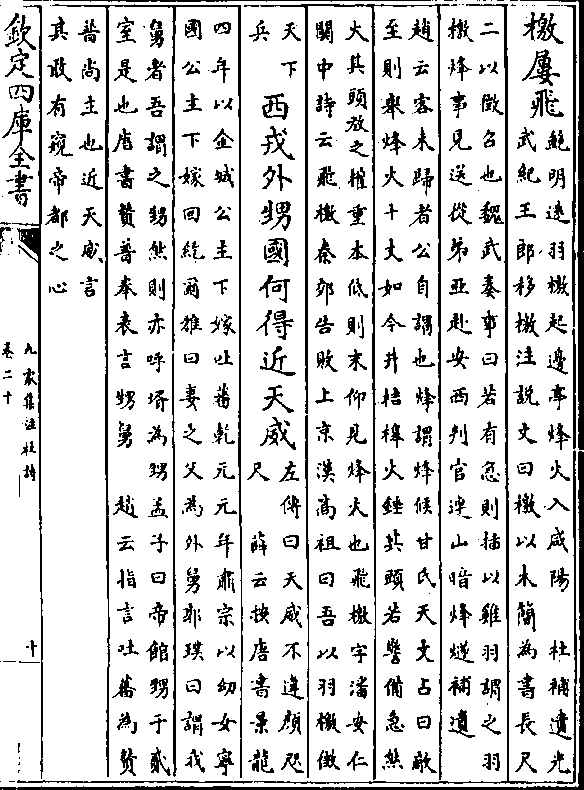 檄屢飛
鮑明逺羽檄起邊亭烽火入咸陽　杜補遺光
武紀王郎移檄注説文曰檄以木簡為書長尺
二以徴召也魏武奏事曰若有急則插以雞羽謂之羽
檄烽事見送從弟亞赴安西判官連山暗烽燧補遺
趙云客未歸者公自謂也烽謂烽候甘氏天文占曰敵
至則舉烽火十丈如今井桔槔火錘其頭若警備急然
大其頭放之權重本低則末仰見烽火也飛檄字潘安仁
關中詩云飛檄秦郊告敗上京漢高祖曰吾以羽檄徴
天下
兵
西戎外甥國何得近天威
左傳曰天威不違顔咫
尺　薛云按唐書景龍
四年以金城公主下嫁吐蕃乾元元年肅宗以幼女寧
國公主下嫁回紇爾雅曰妻之父為外舅郭璞曰謂我
舅者吾謂之甥然則亦呼壻為甥孟子曰帝館甥于貳
室是也唐書贊普奉表言甥舅　趙云指言吐蕃為贊
普尚主也近天威言
其敢有窺帝都之心
欽定四庫全書
九家集注杜詩
卷二十
十